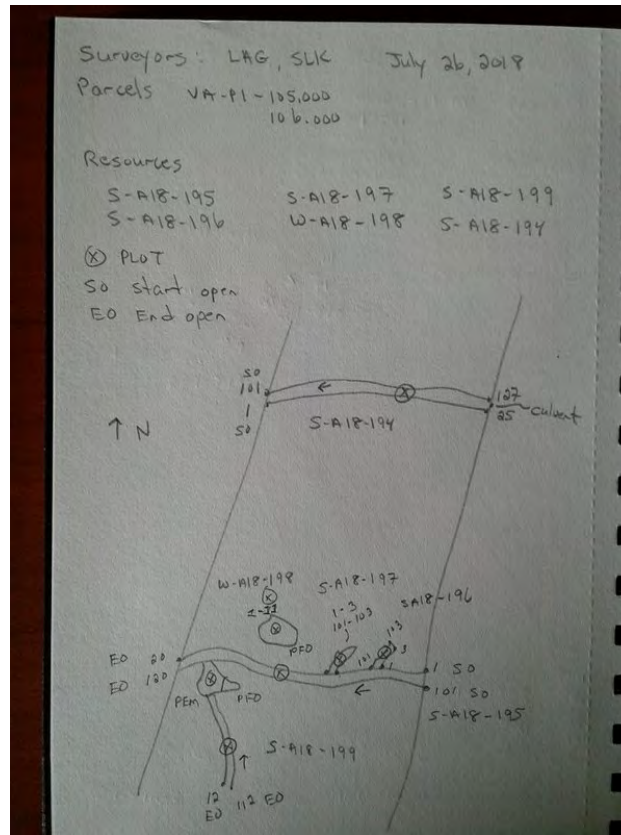 Surveyors: LAG, SLK July 26, 2018
Parcels VA-PI-105.000
106.000
Resources
S-A18-195 S-A18-197 S-A18-199
S-A18-196 W-A18-198 S-A18-194
X PLOT
SO Start open
EO End open
SO
101
1
SO
127
25 Culvert
↑ N
←
S-A18-194
W-A18-198
S-A18-197
SA18-196
1-11
1-3
101-103
103
3
101
1
PFO
EO 20
EO 120
1 SO
101 SO
←
PEM
PFO
S-A18-195
S-A18-199
↑
12 112 EO
EO